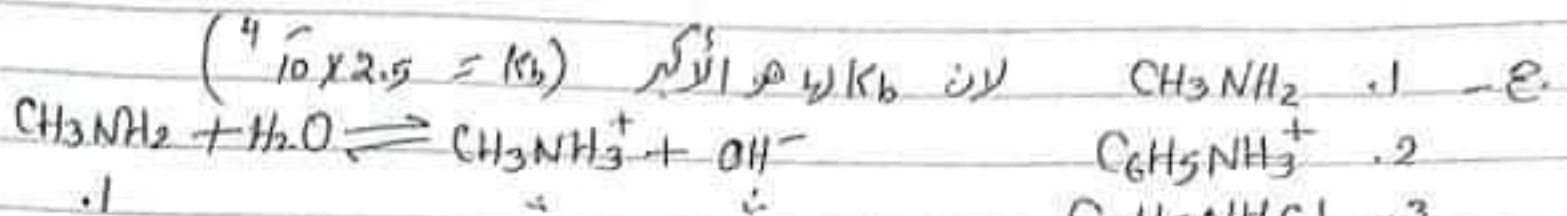 ج- 1. CH3NH2 لان Kb لها هو الأكبر (Kb = 2.5 x 10^-4)
2. C6H5NH3+ CH3NH2 + H2O ⇌ CH3NH3+ + OH-
3. .1